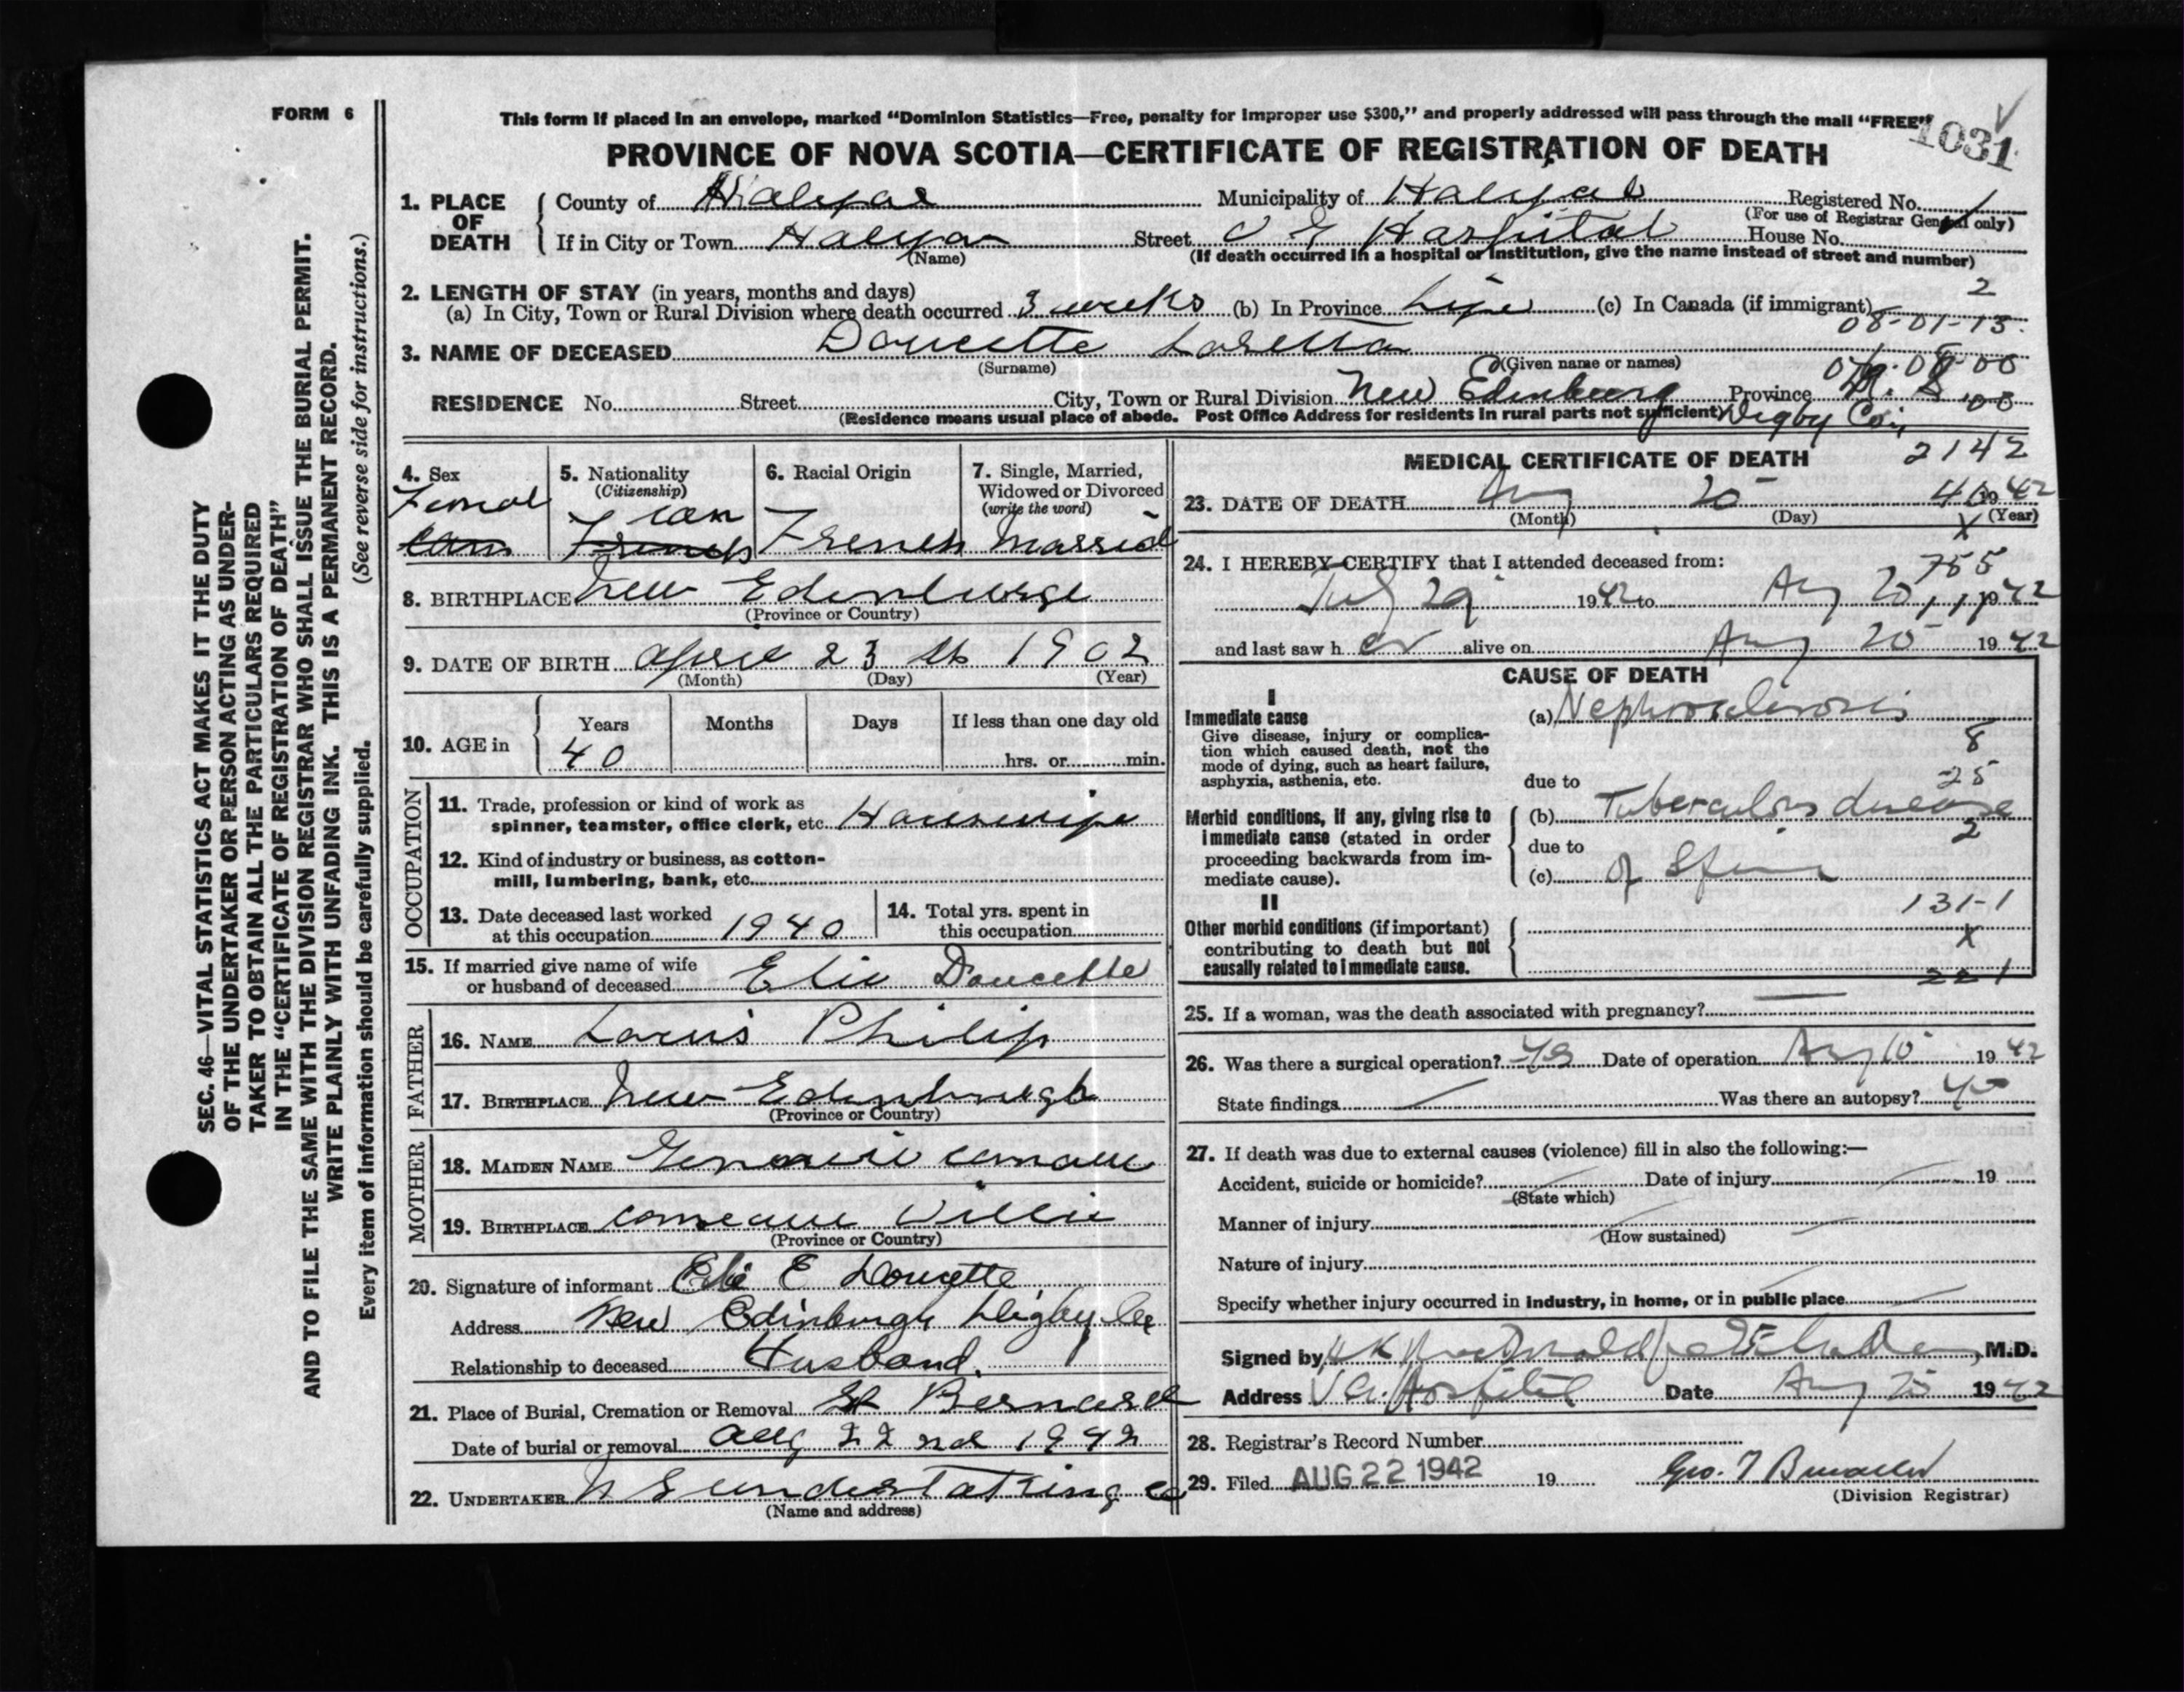 FORM 6
This form if placed in an envelope, marked "Dominion Statistics—Free, penalty for improper use $300," and properly addressed will pass through the mail "FREE"
1031
PROVINCE OF NOVA SCOTIA—CERTIFICATE OF REGISTRATION OF DEATH
1. PLACE OF DEATH
County of Halifax Municipality of Halifax Registered No.
(For use of Registrar General only)
If in City or Town Halifax Street V G Hospital House No.
(Name) (If death occurred in a hospital or institution, give the name instead of street and number)
2. LENGTH OF STAY (in years, months and days) 2
(a) In City, Town or Rural Division where death occurred 3 weeks (b) In Province Life (c) In Canada (if immigrant)
08-01-13
3. NAME OF DECEASED Doucette Loretta
(Surname) (Given name or names)
RESIDENCE No. Street City, Town or Rural Division New Edinburg Province N. S.
(Residence means usual place of abode. Post Office Address for residents in rural parts not sufficient) Digby Co.,
SEC. 46—VITAL STATISTICS ACT MAKES IT THE DUTY
OF THE UNDERTAKER OR PERSON ACTING AS UNDER-
TAKER TO OBTAIN ALL THE PARTICULARS REQUIRED
IN THE "CERTIFICATE OF REGISTRATION OF DEATH"
AND TO FILE THE SAME WITH THE DIVISION REGISTRAR WHO SHALL ISSUE THE BURIAL PERMIT.
WRITE PLAINLY WITH UNFADING INK. THIS IS A PERMANENT RECORD.
Every item of information should be carefully supplied. (See reverse side for instructions.)
4. Sex
Female
5. Nationality
(Citizenship)
Can
French
6. Racial Origin
French
7. Single, Married,
Widowed or Divorced
(write the word)
Married
8. BIRTHPLACE New Edenburge
(Province or Country)
9. DATE OF BIRTH April 23 th 1902
(Month) (Day) (Year)
10. AGE in
Years Months Days If less than one day old
40 hrs. or min.
OCCUPATION
11. Trade, profession or kind of work as
spinner, teamster, office clerk, etc. Housewife
12. Kind of industry or business, as cotton-
mill, lumbering, bank, etc.
13. Date deceased last worked
at this occupation 1940
14. Total yrs. spent in
this occupation
15. If married give name of wife
or husband of deceased Elie Doucette
FATHER
16. NAME Louis Philip
17. BIRTHPLACE New Edenburgh
(Province or Country)
MOTHER
18. MAIDEN NAME
19. BIRTHPLACE Comeau Ville
(Province or Country)
20. Signature of informant Elie E Doucette
Address New Edinburgh Digby Co
Relationship to deceased Husband.
21. Place of Burial, Cremation or Removal St Bernard
Date of burial or removal Aug 22 nd 1942
22. UNDERTAKER N S Undertaking Co
(Name and address)
MEDICAL CERTIFICATE OF DEATH 2142
23. DATE OF DEATH Aug 20 1942
(Month) (Day) (Year)
24. I HEREBY CERTIFY that I attended deceased from: 755
July 29 1942 to Aug 20 1942
and last saw h er alive on Aug 20 1942
CAUSE OF DEATH
I
Immediate cause
Give disease, injury or complica-
tion which caused death, not the
mode of dying, such as heart failure,
asphyxia, asthenia, etc.
(a) Nephrosclerosis
8
25
due to
Morbid conditions, if any, giving rise to
immediate cause (stated in order
proceeding backwards from im-
mediate cause).
(b) Tuberculous disease
2
due to
(c) of Spine
131-1
II
Other morbid conditions (if important)
contributing to death but not
causally related to immediate cause.
X
221
25. If a woman, was the death associated with pregnancy?
26. Was there a surgical operation? yes Date of operation Aug 10 1942
State findings Was there an autopsy?
27. If death was due to external causes (violence) fill in also the following:—
Accident, suicide or homicide? Date of injury 19
(State which)
Manner of injury
(How sustained)
Nature of injury
Specify whether injury occurred in industry, in home, or in public place
Signed by M.D.
Address V.G. Hospital Date Aug 20 1942
28. Registrar's Record Number
29. Filed AUG 22 1942 19
(Division Registrar)